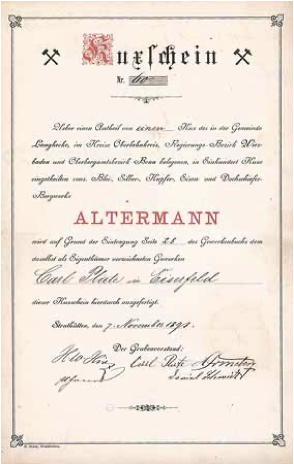 Kuxschein
Nr. 60
Ueber einen Antheil von einem Kux des in der Gemeinde
Langhecke, im Kreise Oberlahnkreis, Regierungs-Bezirk Wies-
baden und Oberbergamtsbezirk Bonn belegenen, in Einhundert Kuxe
eingetheilten cons. Blei, Silber, Kupfer, Eisen und Dachschiefer-
Bergwerks
ALTERMANN
wird auf Grund der Eintragung Seite 28 des Gewerkenbuchs dem
daselbst als Eigenthümer verzeichneten Gewerken
Carl Plate in Eiserfeld
dieser Kuxschein hierdurch ausgefertigt.
den 7. November 1891.
Der Grubenvorstand:
Carl Plate
Daniel Schmidt